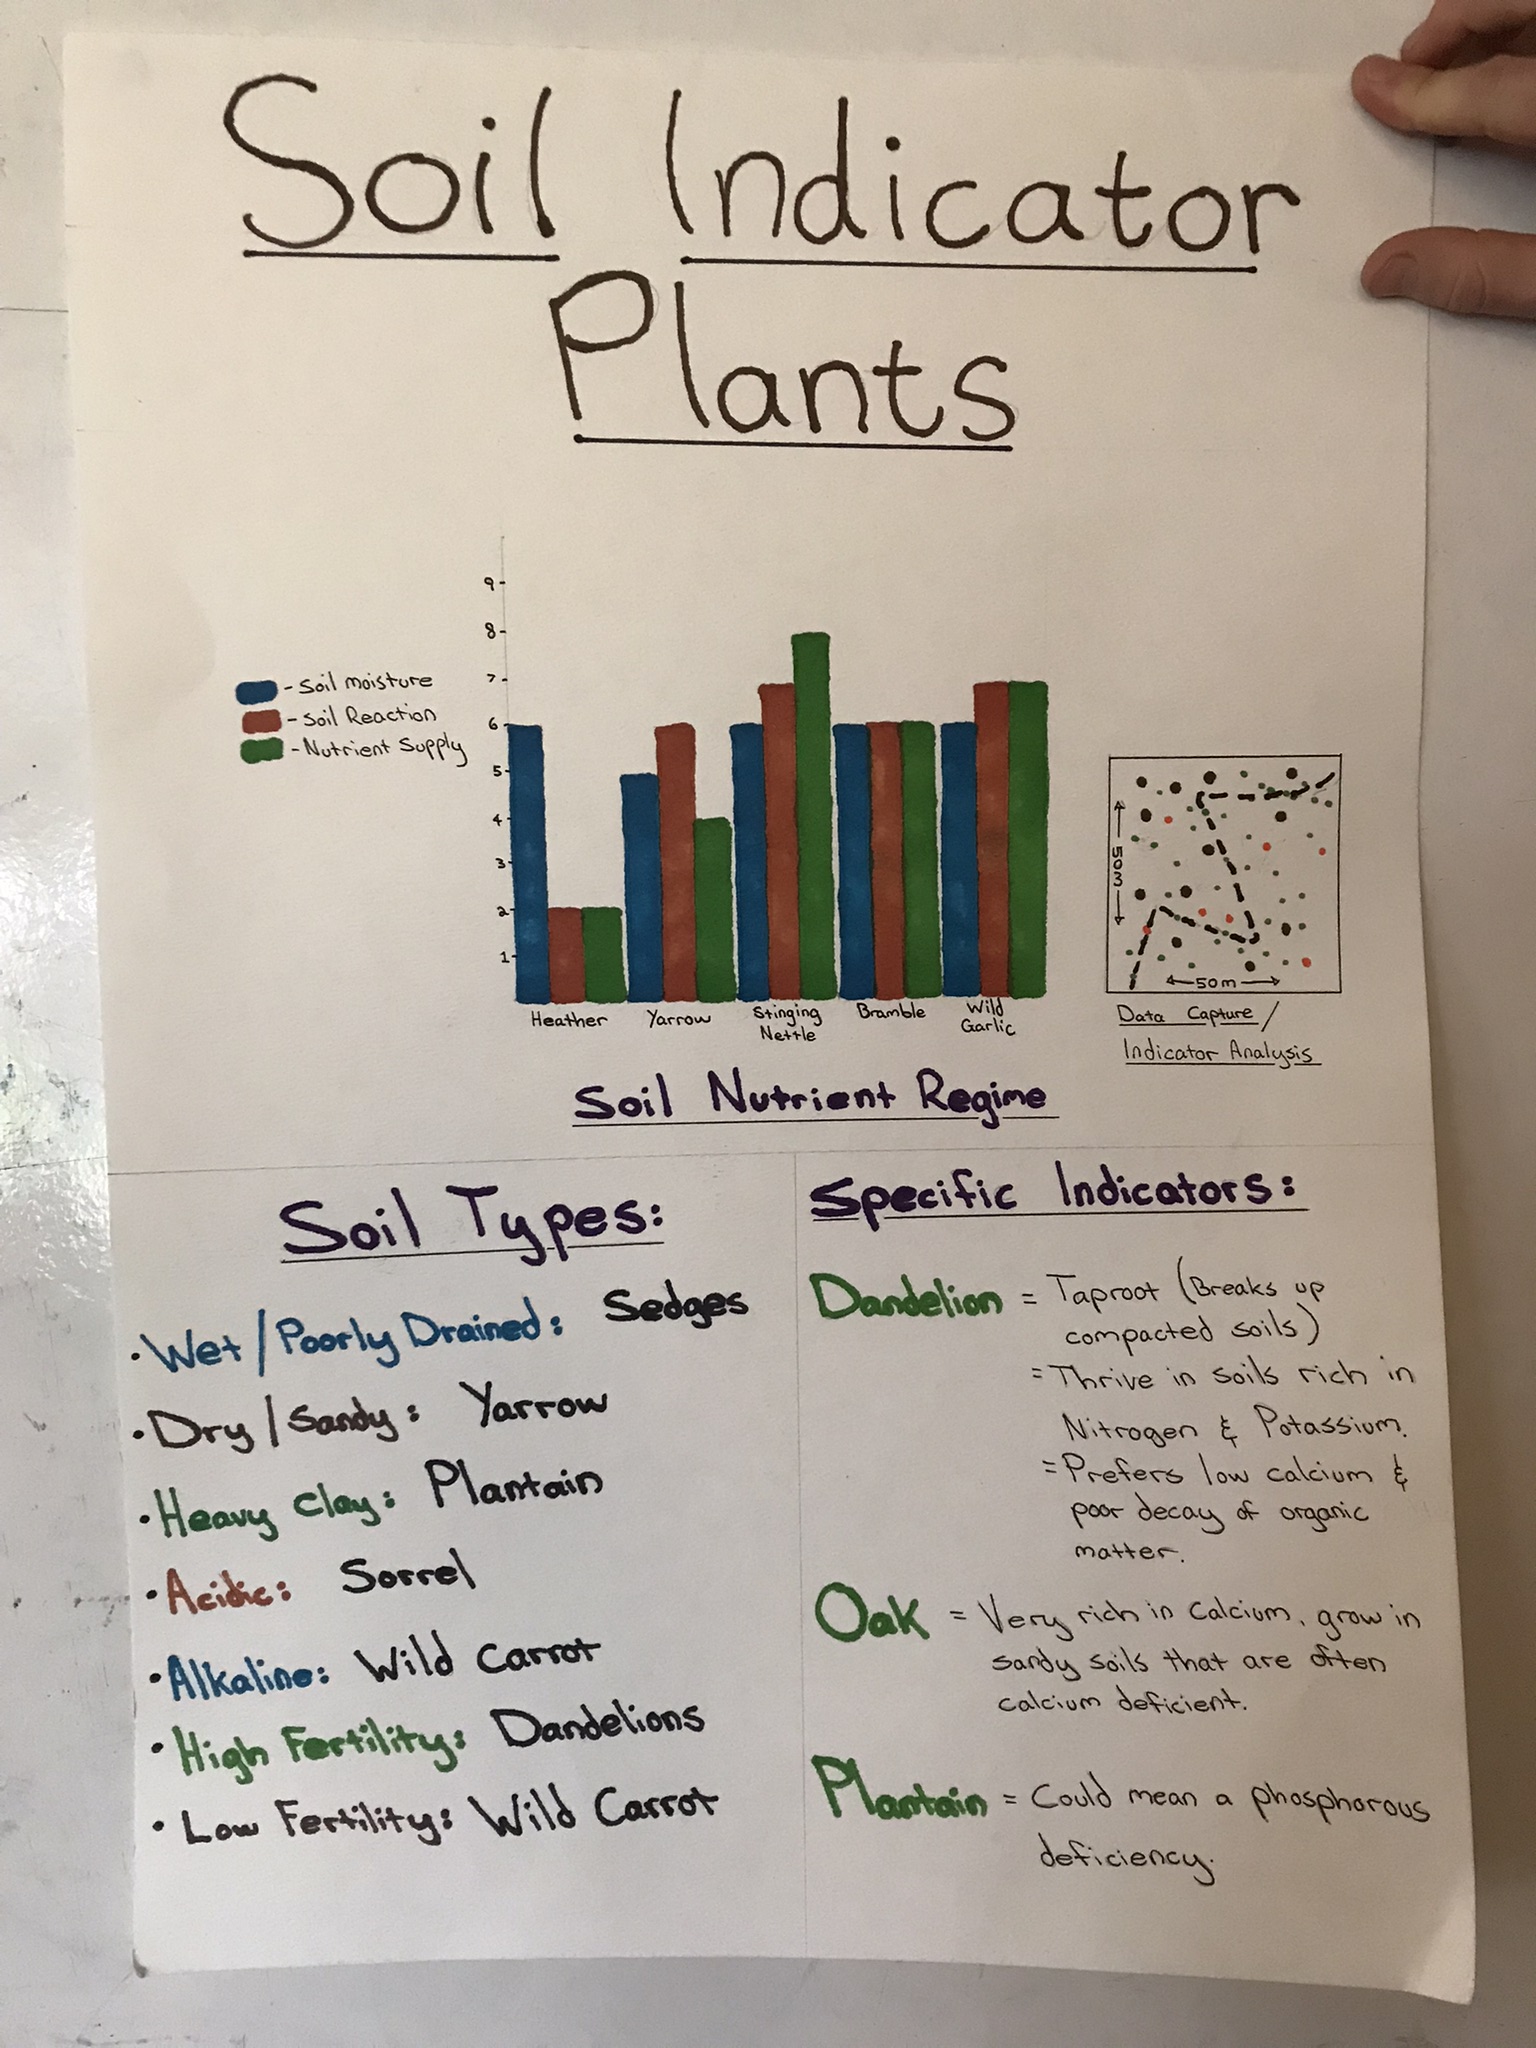 Soil Indicator
Plants
9
8
7
6
5
4
3
2
1
- Soil moisture
- Soil Reaction
- Nutrient Supply
Heather
Yarrow
Stinging
Nettle
Bramble
Wild
Garlic
50m
50m
Data Capture /
Indicator Analysis
Soil Nutrient Regime
Soil Types:
• Wet / Poorly Drained: Sedges
• Dry / Sandy: Yarrow
• Heavy Clay: Plantain
• Acidic: Sorrel
• Alkaline: Wild Carrot
• High Fertility: Dandelions
• Low Fertility: Wild Carrot
Specific Indicators:
Dandelion = Taproot (Breaks up
compacted soils)
= Thrive in soils rich in
Nitrogen & Potassium.
= Prefers low calcium &
poor decay of organic
matter.
Oak = Very rich in Calcium, grow in
sandy soils that are often
calcium deficient.
Plantain = Could mean a phosphorous
deficiency.